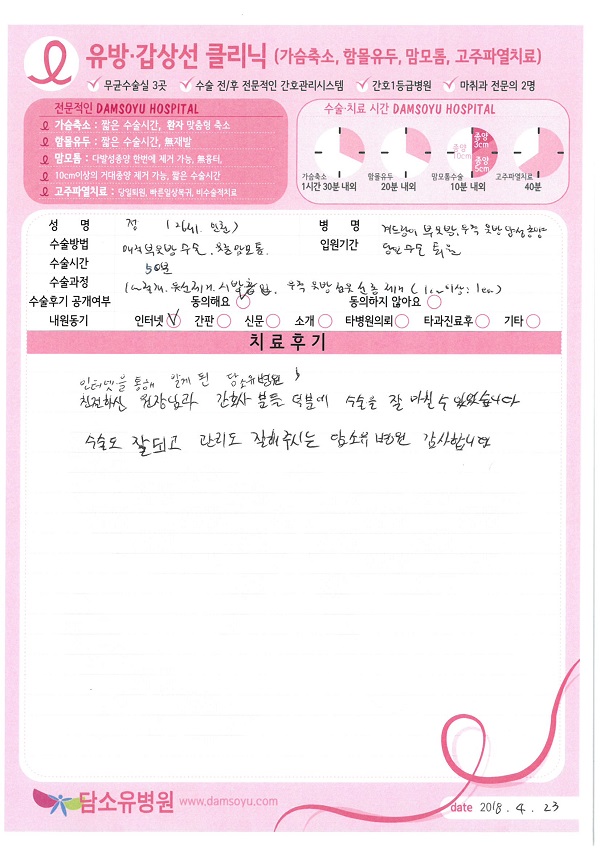 유방·갑상선 클리닉 (가슴축소, 함몰유두, 맘모톰, 고주파열치료)
무균수술실 3곳 수술 전/후 전문적인 간호관리시스템 간호1등급병원 마취과 전문의 2명
전문적인 DAMSOYU HOSPITAL
가슴축소 : 짧은 수술시간, 환자 맞춤형 축소
함몰유두 : 짧은 수술시간, 無재발
맘모톰 : 다발성종양 한번에 제거 가능, 無흉터,
10cm이상의 거대종양 제거 가능, 짧은 수술시간
고주파열치료 : 당일퇴원, 빠른일상복귀, 비수술적치료
수술·치료 시간 DAMSOYU HOSPITAL
종양 10cm 종양 3cm 종양 5cm
가슴축소 함몰유두 맘모톰수술 고주파열치료
1시간 30분 내외 20분 내외 10분 내외 40분
성 명 정 (26세. 인천)
병 명 겨드랑이 부유방, 우측 유방 양성종양
수술방법 부유방 수술, 맘모톰.
입원기간 당일 수술 퇴원
수술시간 50분
수술과정
수술후기 공개여부 동의해요 동의하지 않아요
내원동기 인터넷 간판 신문 소개 타병원의뢰 타과진료후 기타
치료후기
인터넷을 통해 알게 된 담소유병원
친절하신 원장님과 간호사 분들 덕분에 수술을 잘 마칠 수 있었습니다
수술도 잘되고 관리도 잘해주시는 담소유병원 감사합니다
담소유병원 www.damsoyu.com
date 2018. 4. 23